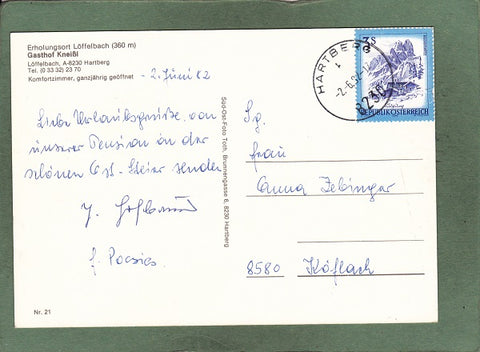 Erholungsort Löffelbach (360 m)
Gasthof Kneißl
Löffelbach, A-8230 Hartberg
Tel. (0 33 32) 23 70
Komfortzimmer, ganzjährig geöffnet
- 2. Juni 82
Liebe Urlaubsgrüße von
unserer Pension in der
schönen Ost-Steier senden
Nr. 21
Süd-Ost-Foto Toth, Brunnengasse 6, 8230 Hartberg
HARTBERG
8230
7 S
REPUBLIK ÖSTERREICH
Frau
Anna Zebinger
8580 Köflach